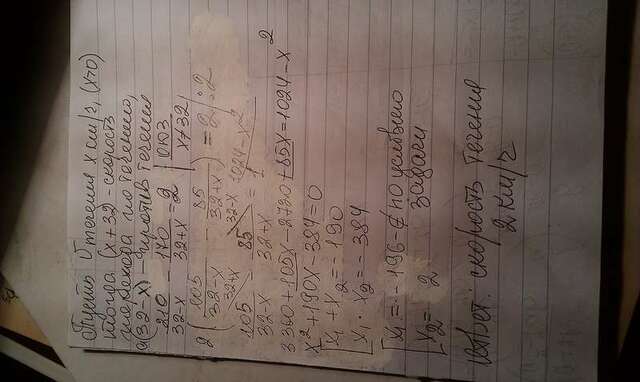 Пусть V течения x км/ч, (x>0)
тогда (x+32) - скорость
по течению,
а (32-x) - против течения
210/(32-x) - 170/(32+x) = 2 | ОДЗ x≠±32
2(105/(32-x) - 85/(32+x)) = 2 | :2
105/(32-x) - 85/(32+x) = 1
3360+105x-2720+85x=1024-x²
x²+190x-384=0
[x₁+x₂=-190
[x₁·x₂=-384
[x₁=-196 ∉ по условию задачи
[x₂= 2
Ответ: скорость течения
2 км/ч